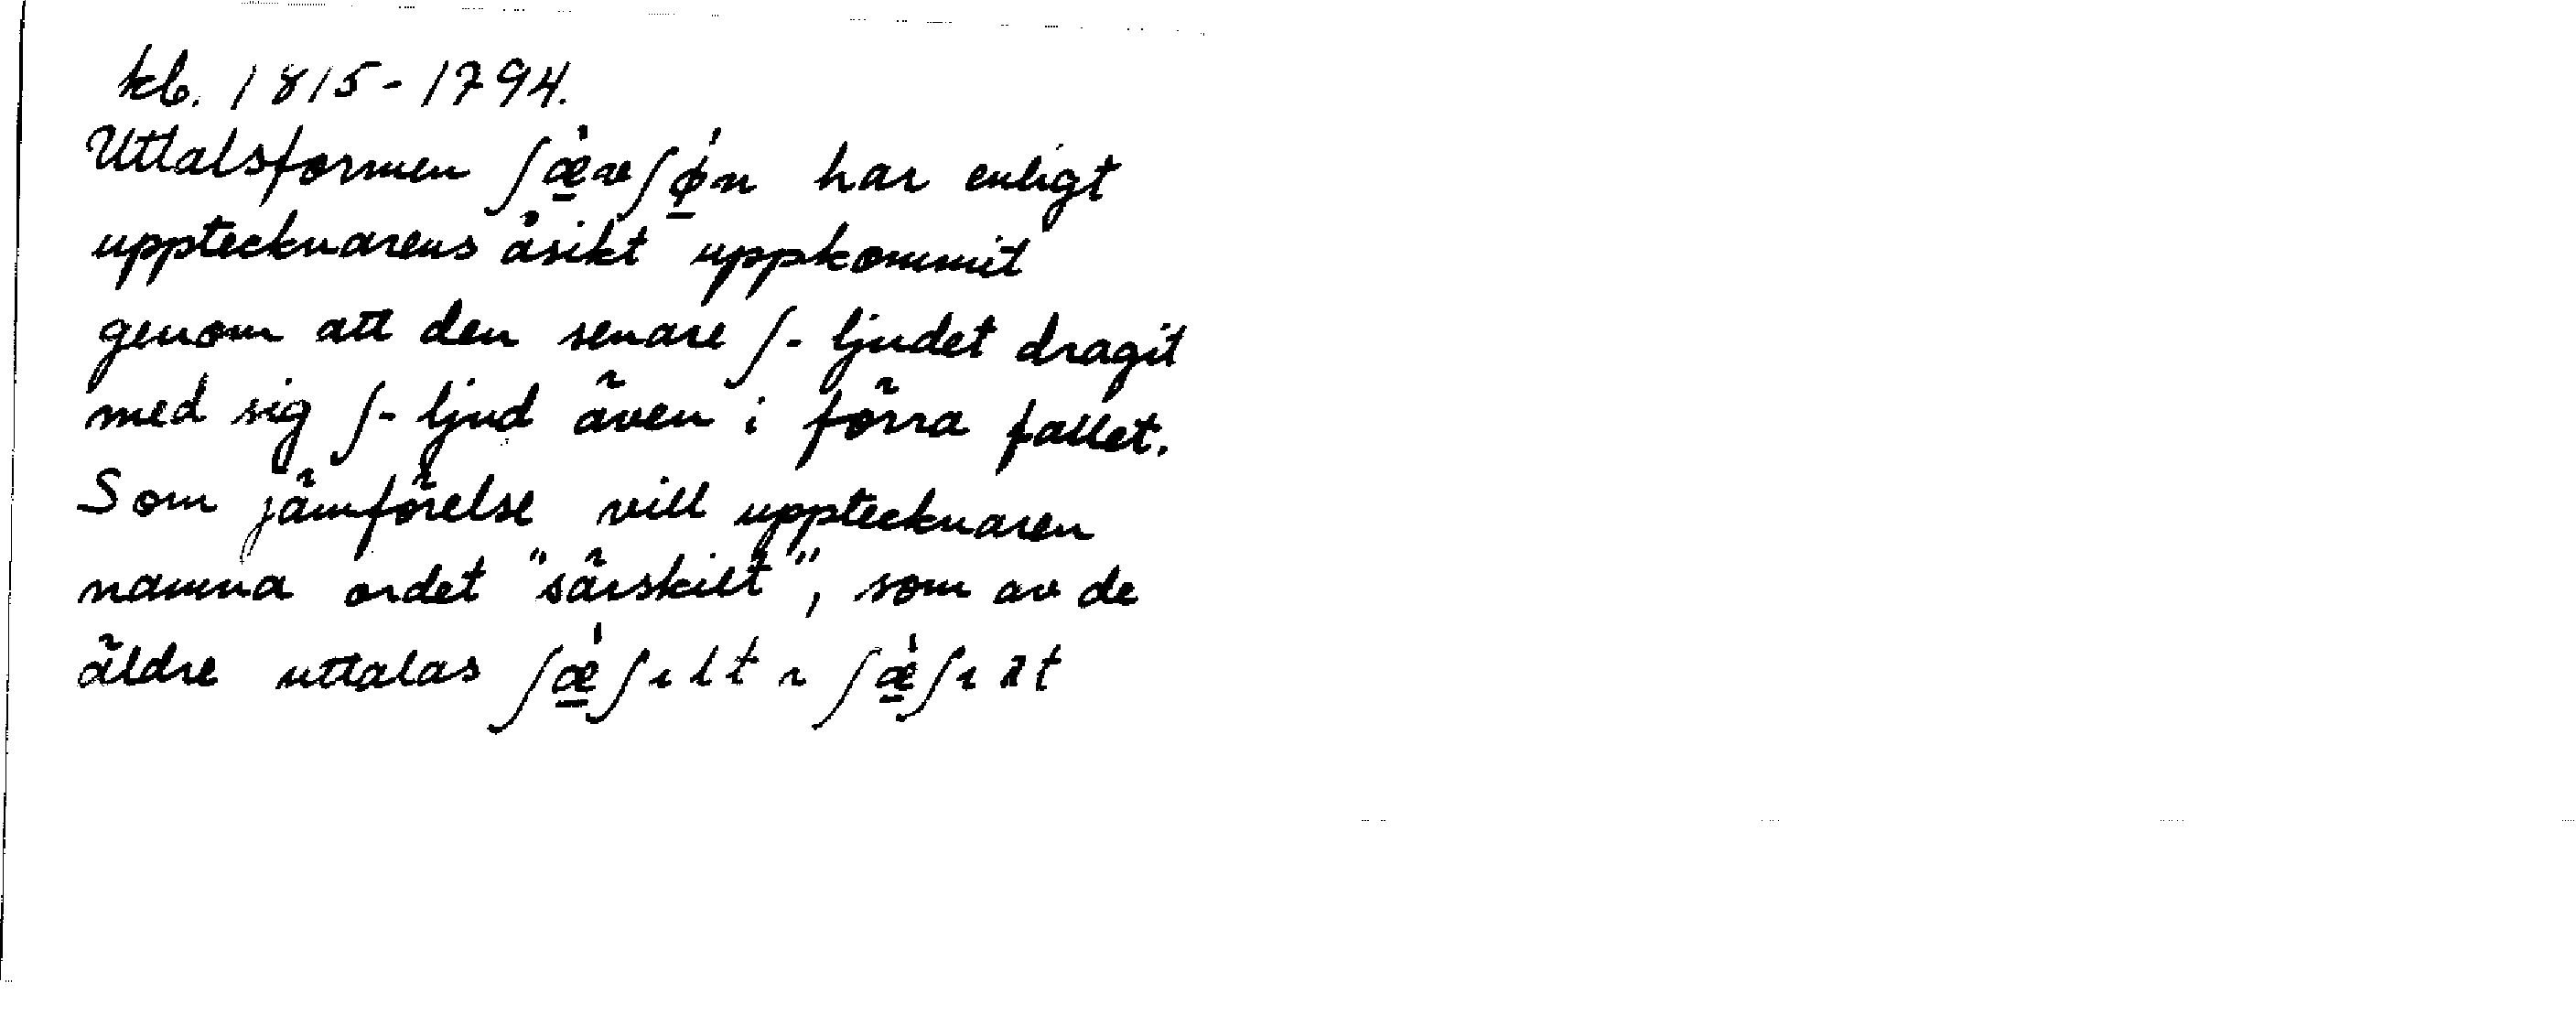 kb. 1815-1794.
Uttalsformen ʃæ̲̀væʃǿ̲n har enligt
upptecknarens åsikt uppkommit
genom att den senare ʃ-ljudet dragit
med sig ʃ-ljud även i förra fallet.
Som jämförelse vill upptecknaren
namna ordet "särskilt", som av de
äldre uttalas ʃæ̲̀ʃɪlt ~ ʃæ̲̀ʃɪ t